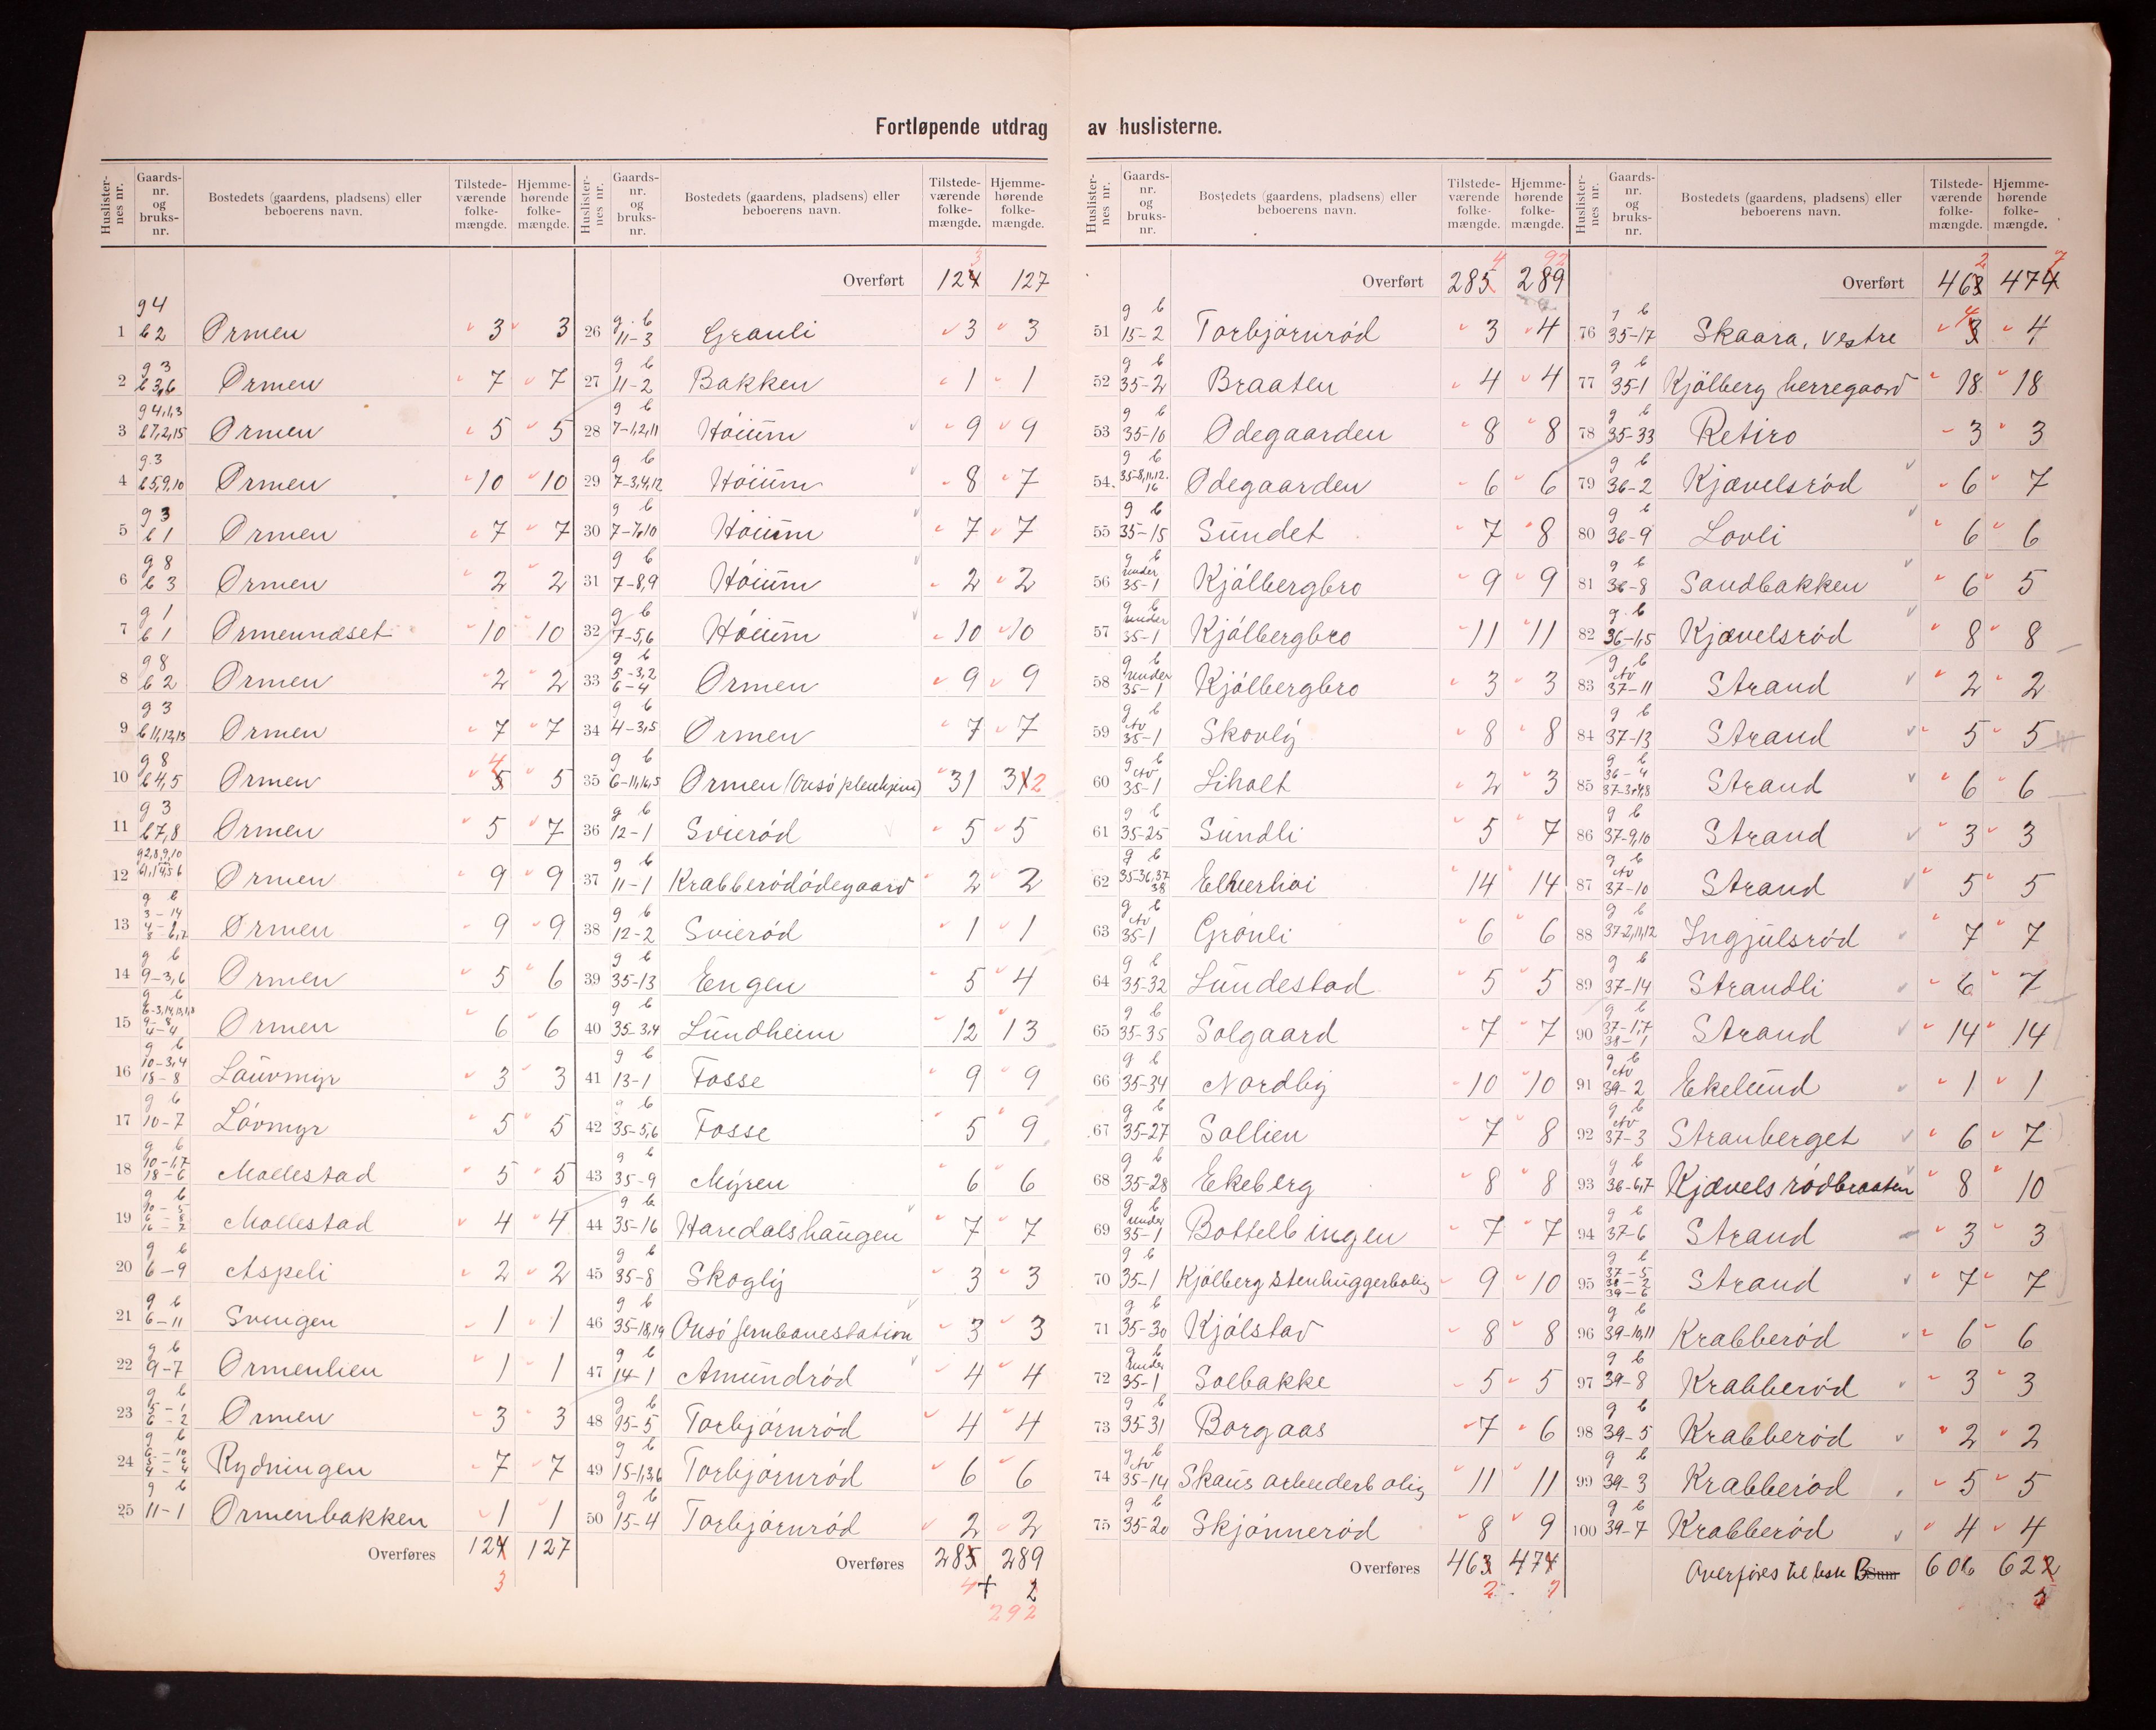 Fortløpende utdrag av huslisterne.
Huslister-nes nr. | Gaards-nr. og bruks-nr. | Bostedets (gaardens, pladsens) eller beboerens navn. | Tilstede-værende folke-mængde. | Hjemme-hørende folke-mængde.
1 g 4 b 2 Ørmen 3 3
2 g 3 b 3,6 Ørmen 7 7
3 g 4,1,3 b 7,2,15 Ørmen 5 5
4 g 3 b 5,9,10 Ørmen 10 10
5 g 3 b 1 Ørmen 7 7
6 g 8 b 3 Ørmen 2 2
7 g 1 b 1 Ørmenndset 10 10
8 g 8 b 2 Ørmen 2 2
9 g 3 b 11,12,13 Ørmen 7 7
10 g 8 b 4,5 Ørmen 5 4 5
11 g 3 b 7,8 Ørmen 5 7
12 g 2,8,9,10 Ørmen 9 9
13 g b 3-14 Ørmen 9 9
14 g b 9-3,6 Ørmen 5 6
15 g b Ørmen 6 6
16 g b 10-3,4 18-8 Lauvmyr 3 3
17 g b 10-7 Lövmyr 5 5
18 g b 10-1,7 18-6 Mollestad 5 5
19 g b Mollestad 4 4
20 g b 6-9 Aspeli 2 2
21 g b 6-11 Svengen 1 1
22 g b 9-7 Ørmenlien 1 1
23 g b 5-1 6-2 Ørmen 3 3
24 g b Rydningen 7 7
25 g b 11-1 Ørmenbakken 1 1
Overføres 124 127
3
Huslister-nes nr. | Gaards-nr. og bruks-nr. | Bostedets (gaardens, pladsens) eller beboerens navn. | Tilstede-værende folke-mængde. | Hjemme-hørende folke-mængde.
3
Overført 124 127
26 g b 11-3 Granli 3 3
27 g b 11-2 Bakken 1 1
28 g b 7-1,2,11 Höium 9 9
29 g b 7-3,4,12 Höium 8 7
30 g b 7-7,10 Höium 7 7
31 g b 7-8,9 Höium 2 2
32 g b 7-5,6 Höium 10 10
33 g b 5-3,2 6-4 Ørmen 9 9
34 g b 4-3,5 Ørmen 7 7
35 g b Ørmen (Onsö pleiehjem) 31 31 2
36 g b 12-1 Svieröd 5 5
37 g b 11-1 Krabberödödegaard 2 2
38 g b 12-2 Svieröd 1 1
39 g b 35-13 Engen 5 4
40 g b 35-3,4 Lundheim 12 13
41 g b 13-1 Fosse 9 9
42 g b 35-5,6 Fosse 5 9
43 g b 35-9 Myren 6 6
44 g b 35-16 Haredalshaugen 7 7
45 g b 35-8 Skogly 3 3
46 g b 35-18,19 Onsö jernbanestation 3 3
47 g b 14-1 Amundröd 4 4
48 g b 15-5 Torbjörnröd 4 4
49 g b 15-1,3,6 Torbjörnröd 6 6
50 g b 15-4 Torbjörnröd 2 2
Overføres 285 289
4 + 2
292
Huslister-nes nr. | Gaards-nr. og bruks-nr. | Bostedets (gaardens, pladsens) eller beboerens navn. | Tilstede-værende folke-mængde. | Hjemme-hørende folke-mængde.
4 92
Overført 285 289
51 g b 15-2 Torbjörnröd 3 4
52 g b 35-2 Braaten 4 4
53 g b 35-10 Ødegaarden 8 8
54 g b 35-8,11,12.16 Ødegaarden 6 6
55 g b 35-15 Sundet 7 8
56 g b under 35-1 Kjölbergbro 9 9
57 g b under 35-1 Kjölbergbro 11 11
58 g b under 35-1 Kjölbergbro 3 3
59 g b av 35-1 Skovly 8 8
60 g b av 35-1 Liholt 2 3
61 g b 35-25 Sundli 5 7
62 g b 35-36,37 38 14 14
63 g b av 35-1 Grönli 6 6
64 g b 35-32 Lundestad 5 5
65 g b 35-35 Solgaard 7 7
66 g b 35-34 Nordby 10 10
67 g b 35-27 Sollien 7 8
68 g b 35-28 Ekeberg 8 8
69 g b under 35-1 Bottelbingen 7 7
70 g b 35-1 Kjölberg stenhuggerbolig 9 10
71 g b 35-30 Kjölstad 8 8
72 g b under 35-1 Solbakke 5 5
73 g b 35-31 Borgaas 7 6
74 g b av 35-14 Skaus arbeiderbolig 11 11
75 g b 35-20 Skjönneröd 8 9
Overføres 463 474
2 7
Huslister-nes nr. | Gaards-nr. og bruks-nr. | Bostedets (gaardens, pladsens) eller beboerens navn. | Tilstede-værende folke-mængde. | Hjemme-hørende folke-mængde.
2 7
Overført 463 474
76 g b 35-17 Skaara, vestre 3 4 4
77 g b 35-1 Kjölberg herregaard 18 18
78 g b 35-33 Retiro 3 3
79 g b 36-2 Kjævelsröd 6 7
80 g b 36-9 Lovli 6 6
81 g b 36-8 Sandbakken 6 5
82 g b 36-1,5 Kjævelsröd 8 8
83 g b av 37-11 Strand 2 2
84 g b 37-13 Strand 5 5
85 g b 36-4 37-3,4,8 Strand 6 6
86 g b 37-9,10 Strand 3 3
87 g b av 37-10 Strand 5 5
88 g b 37-2,11,12 Ingjulsröd 7 7
89 g b 37-14 Strandli 6 7
90 g b 37-1,7 38-1 Strand 14 14
91 g b av 39-2 Ekelund 1 1
92 g b av 37-3 Stranberget 6 7
93 g b 36-6,7 Kjævelsrödbraaten 8 10
94 g b 37-6 Strand 3 3
95 g b 37-5 38-2 39-6 Strand 7 7
96 g b 39-10,11 Krabberöd 6 6
97 g b 39-8 Krabberöd 3 3
98 g b 39-5 Krabberöd 2 2
99 g b 39-3 Krabberöd 5 5
100 g b 39-7 Krabberöd 4 4
Overføres til liste B Sum 606 622
5